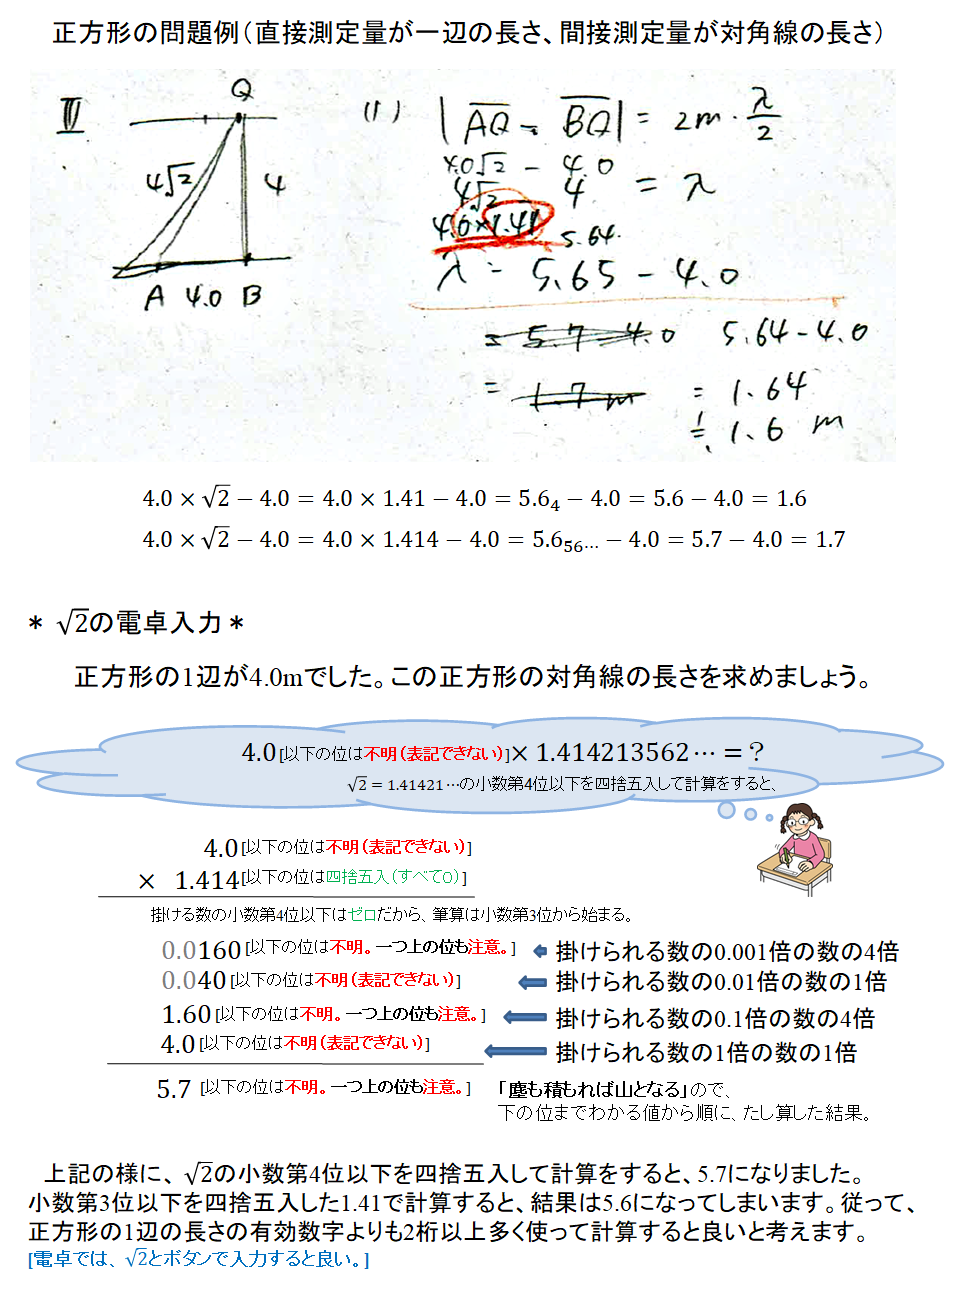 正方形の問題例（直接測定量が一辺の長さ、間接測定量が対角線の長さ）
Ⅲ
Q
4√2
4
A 4.0 B
(1) |AQ - BQ| = 2m・λ/2
4.0√2 - 4.0
4√2 4 = λ
4.0×1.41 5.64
λ = 5.65 - 4.0
= 5.7 - 4.0 5.64 - 4.0
= 1.7 m = 1.64
≒ 1.6 m
4.0 × √2 − 4.0 = 4.0 × 1.41 − 4.0 = 5.6₄ − 4.0 = 5.6 − 4.0 = 1.6
4.0 × √2 − 4.0 = 4.0 × 1.414 − 4.0 = 5.6₅₆… − 4.0 = 5.7 − 4.0 = 1.7
＊ √2の電卓入力＊
正方形の1辺が4.0mでした。この正方形の対角線の長さを求めましょう。
4.0[以下の位は不明（表記できない）]× 1.414213562 ⋯ = ？
√2 = 1.41421 ⋯の小数第4位以下を四捨五入して計算をすると、
4.0[以下の位は不明（表記できない）]
× 1.414[以下の位は四捨五入（すべて0）]
掛ける数の小数第4位以下はゼロだから、筆算は小数第3位から始まる。
0.0160[以下の位は不明。一つ上の位も注意。] 掛けられる数の0.001倍の数の4倍
0.040[以下の位は不明（表記できない）] 掛けられる数の0.01倍の数の1倍
1.60[以下の位は不明。一つ上の位も注意。] 掛けられる数の0.1倍の数の4倍
4.0[以下の位は不明（表記できない）] 掛けられる数の1倍の数の1倍
5.7 [以下の位は不明。一つ上の位も注意。] 「塵も積もれば山となる」ので、
下の位までわかる値から順に、たし算した結果。
上記の様に、√2の小数第4位以下を四捨五入して計算をすると、5.7になりました。
小数第3位以下を四捨五入した1.41で計算すると、結果は5.6になってしまいます。従って、
正方形の1辺の長さの有効数字よりも2桁以上多く使って計算すると良いと考えます。
[電卓では、√2とボタンで入力すると良い。]